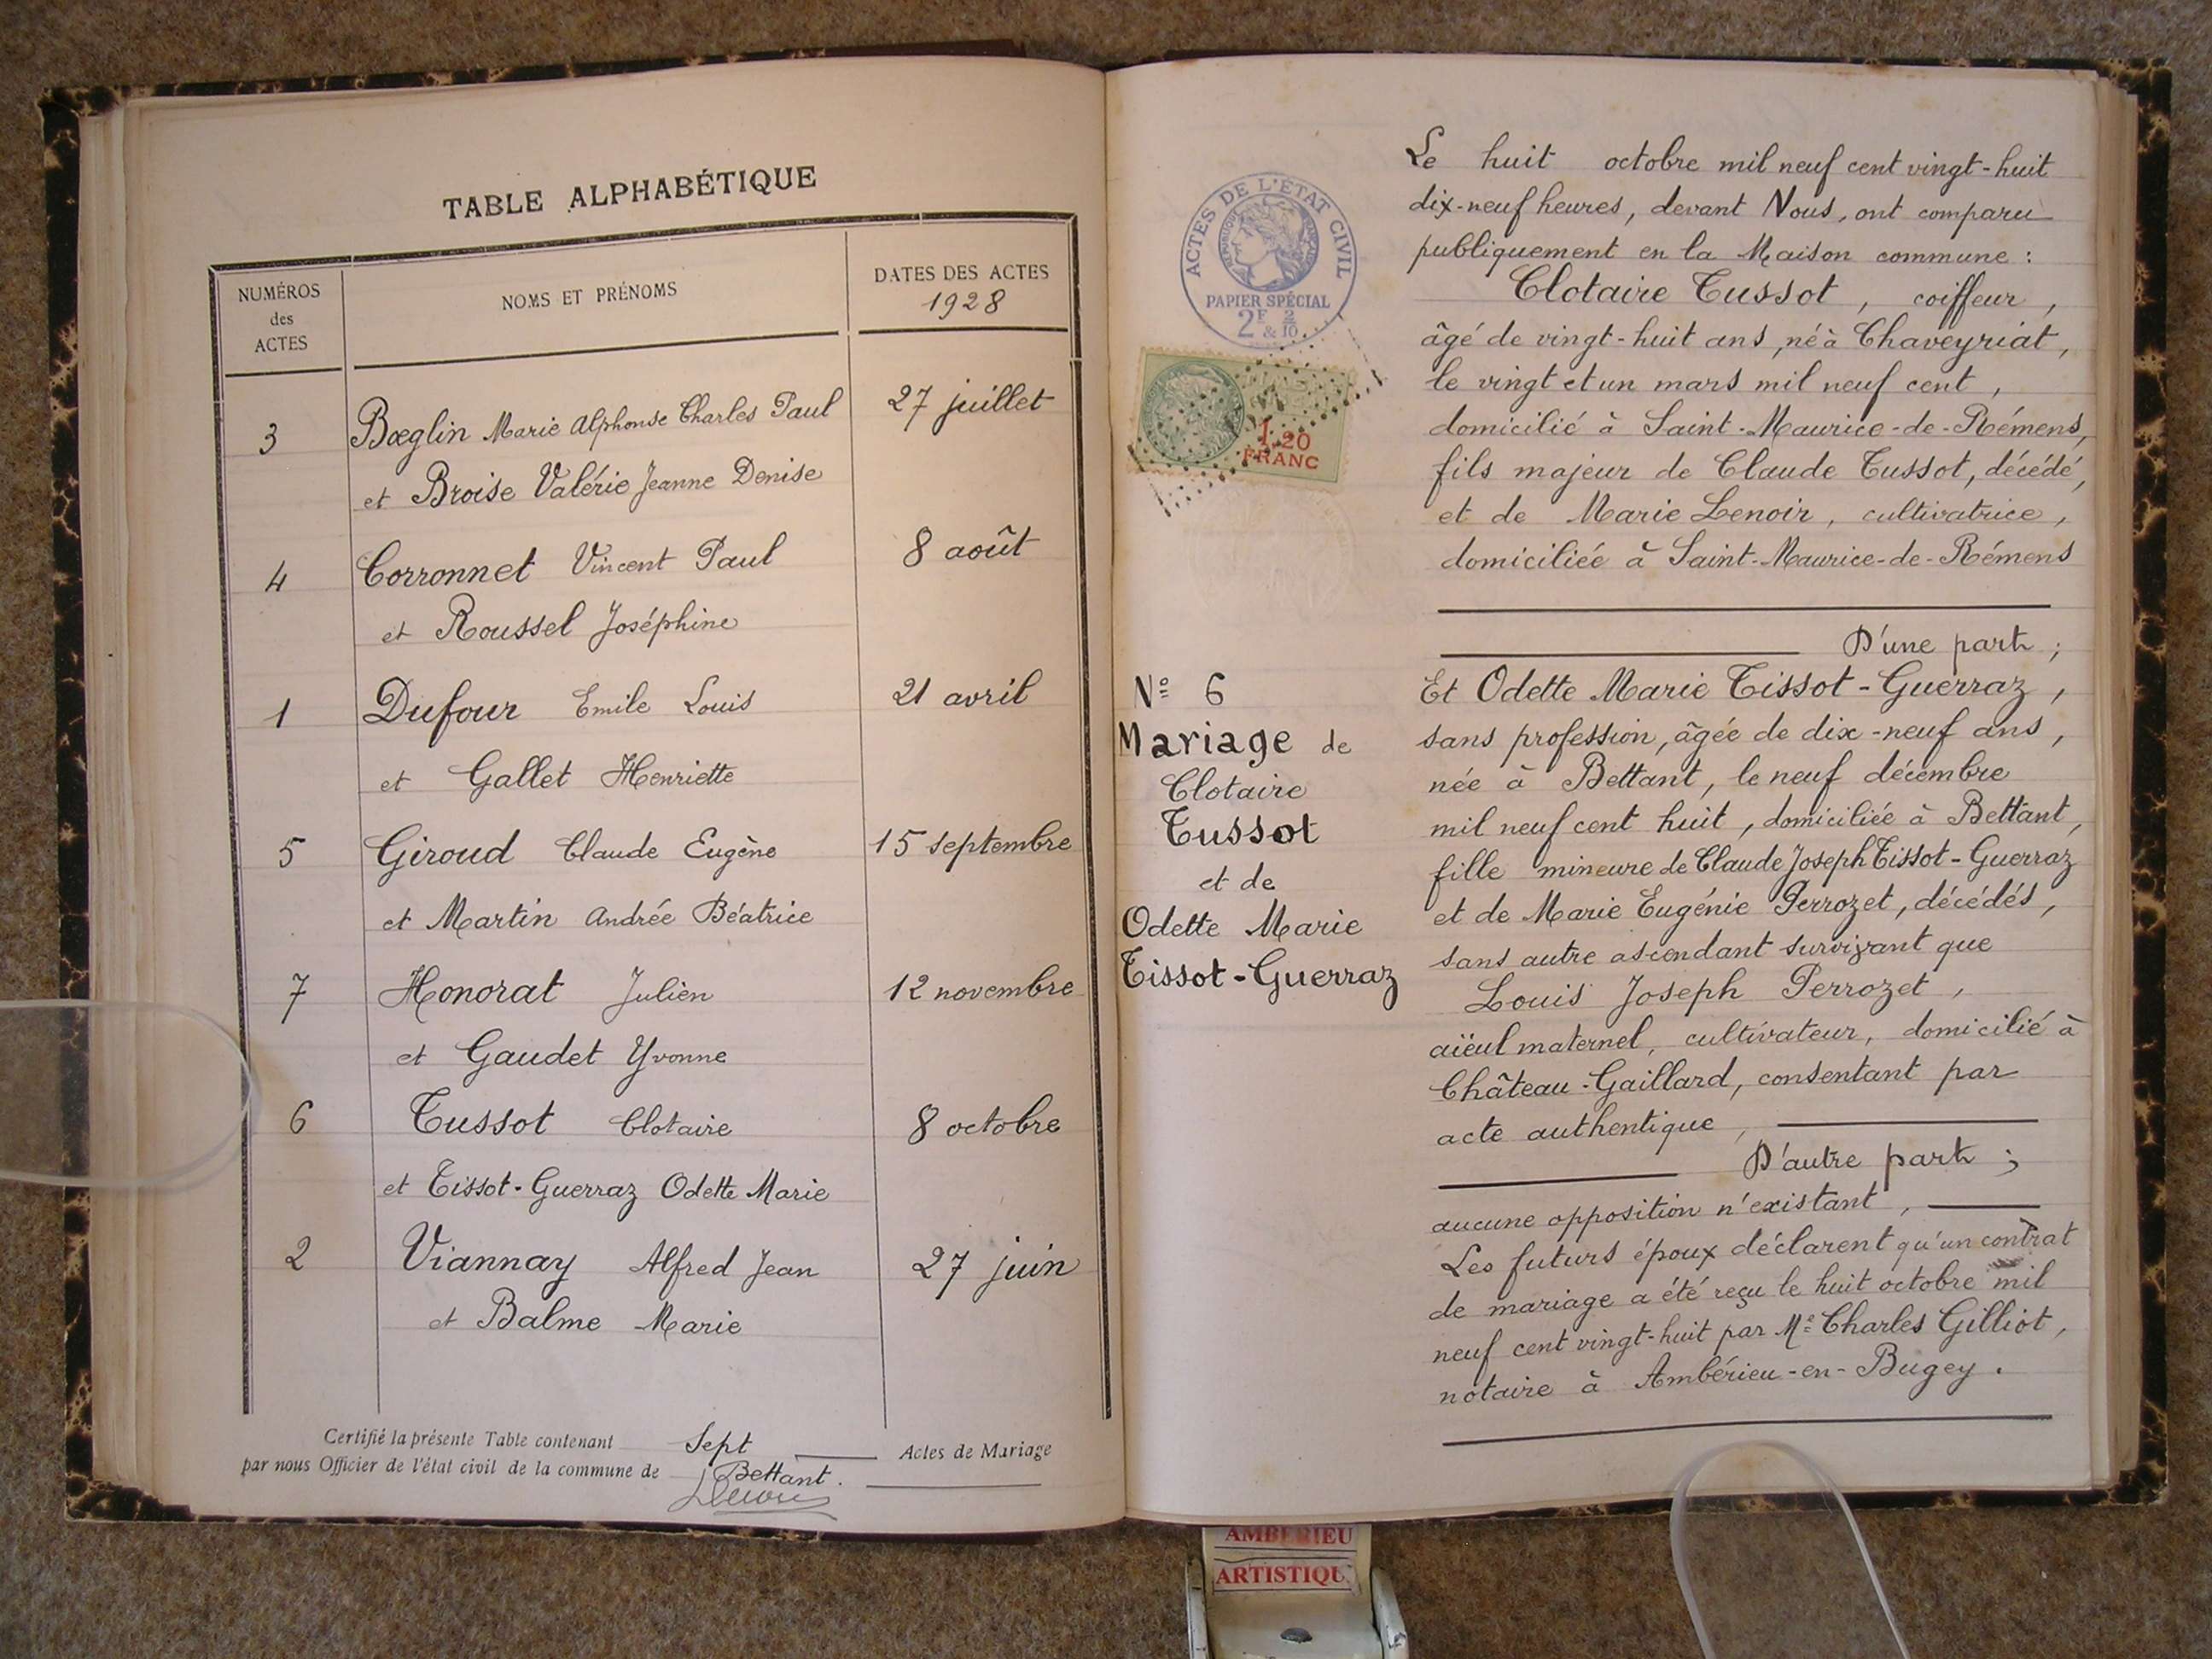 TABLE ALPHABÉTIQUE
NUMÉROS
des
ACTES
NOMS ET PRÉNOMS
DATES DES ACTES
1928
3 Bœglin Marie Alphonse Charles Paul 27 juillet
et Broise Valérie Jeanne Denise
4 Corronnet Vincent Paul 8 août
et Roussel Joséphine
1 Dufour Emile Louis 21 avril
et Gallet Henriette
5 Giroud Claude Eugène 15 septembre
et Martin Andrée Béatrice
7 Honorat Julien 12 novembre
et Gaudet Yvonne
6 Tussot Clotaire 8 octobre
et Tissot-Guerraz Odette Marie
2 Viannay Alfred Jean 27 juin
et Balme Marie
Certifié la présente Table contenant Sept Actes de Mariage
par nous Officier de l'état civil de la commune de Bettant.
ACTES DE L'ÉTAT CIVIL
RÉPUBLIQUE FRANÇAISE
PAPIER SPÉCIAL
2F & 2/10
1,20
FRANC
N° 6
Mariage de
Clotaire
Tussot
et de
Odette Marie
Tissot-Guerraz
Le huit octobre mil neuf cent vingt-huit
dix-neuf heures, devant Nous, ont comparu
publiquement en la Maison commune :
Clotaire Tussot, coiffeur,
âgé de vingt-huit ans, né à Chaveyriat,
le vingt et un mars mil neuf cent,
domicilié à Saint-Maurice-de-Rémens,
fils majeur de Claude Tussot, décédé,
et de Marie Lenoir, cultivatrice,
domiciliée à Saint-Maurice-de-Rémens
D'une part ;
Et Odette Marie Tissot-Guerraz,
sans profession, âgée de dix-neuf ans,
née à Bettant, le neuf décembre
mil neuf cent huit, domiciliée à Bettant,
fille mineure de Claude Joseph Tissot-Guerraz
et de Marie Eugénie Perrozet, décédés,
sans autre ascendant survivant que
Louis Joseph Perrozet,
aïeul maternel, cultivateur, domicilié à
Château-Gaillard, consentant par
acte authentique,
D'autre part ;
aucune opposition n'existant,
Les futurs époux déclarent qu'un contrat
de mariage a été reçu le huit octobre mil
neuf cent vingt-huit par Me Charles Gilliot,
notaire à Ambérieu-en-Bugey.
AMBERIEU
ARTISTIQU